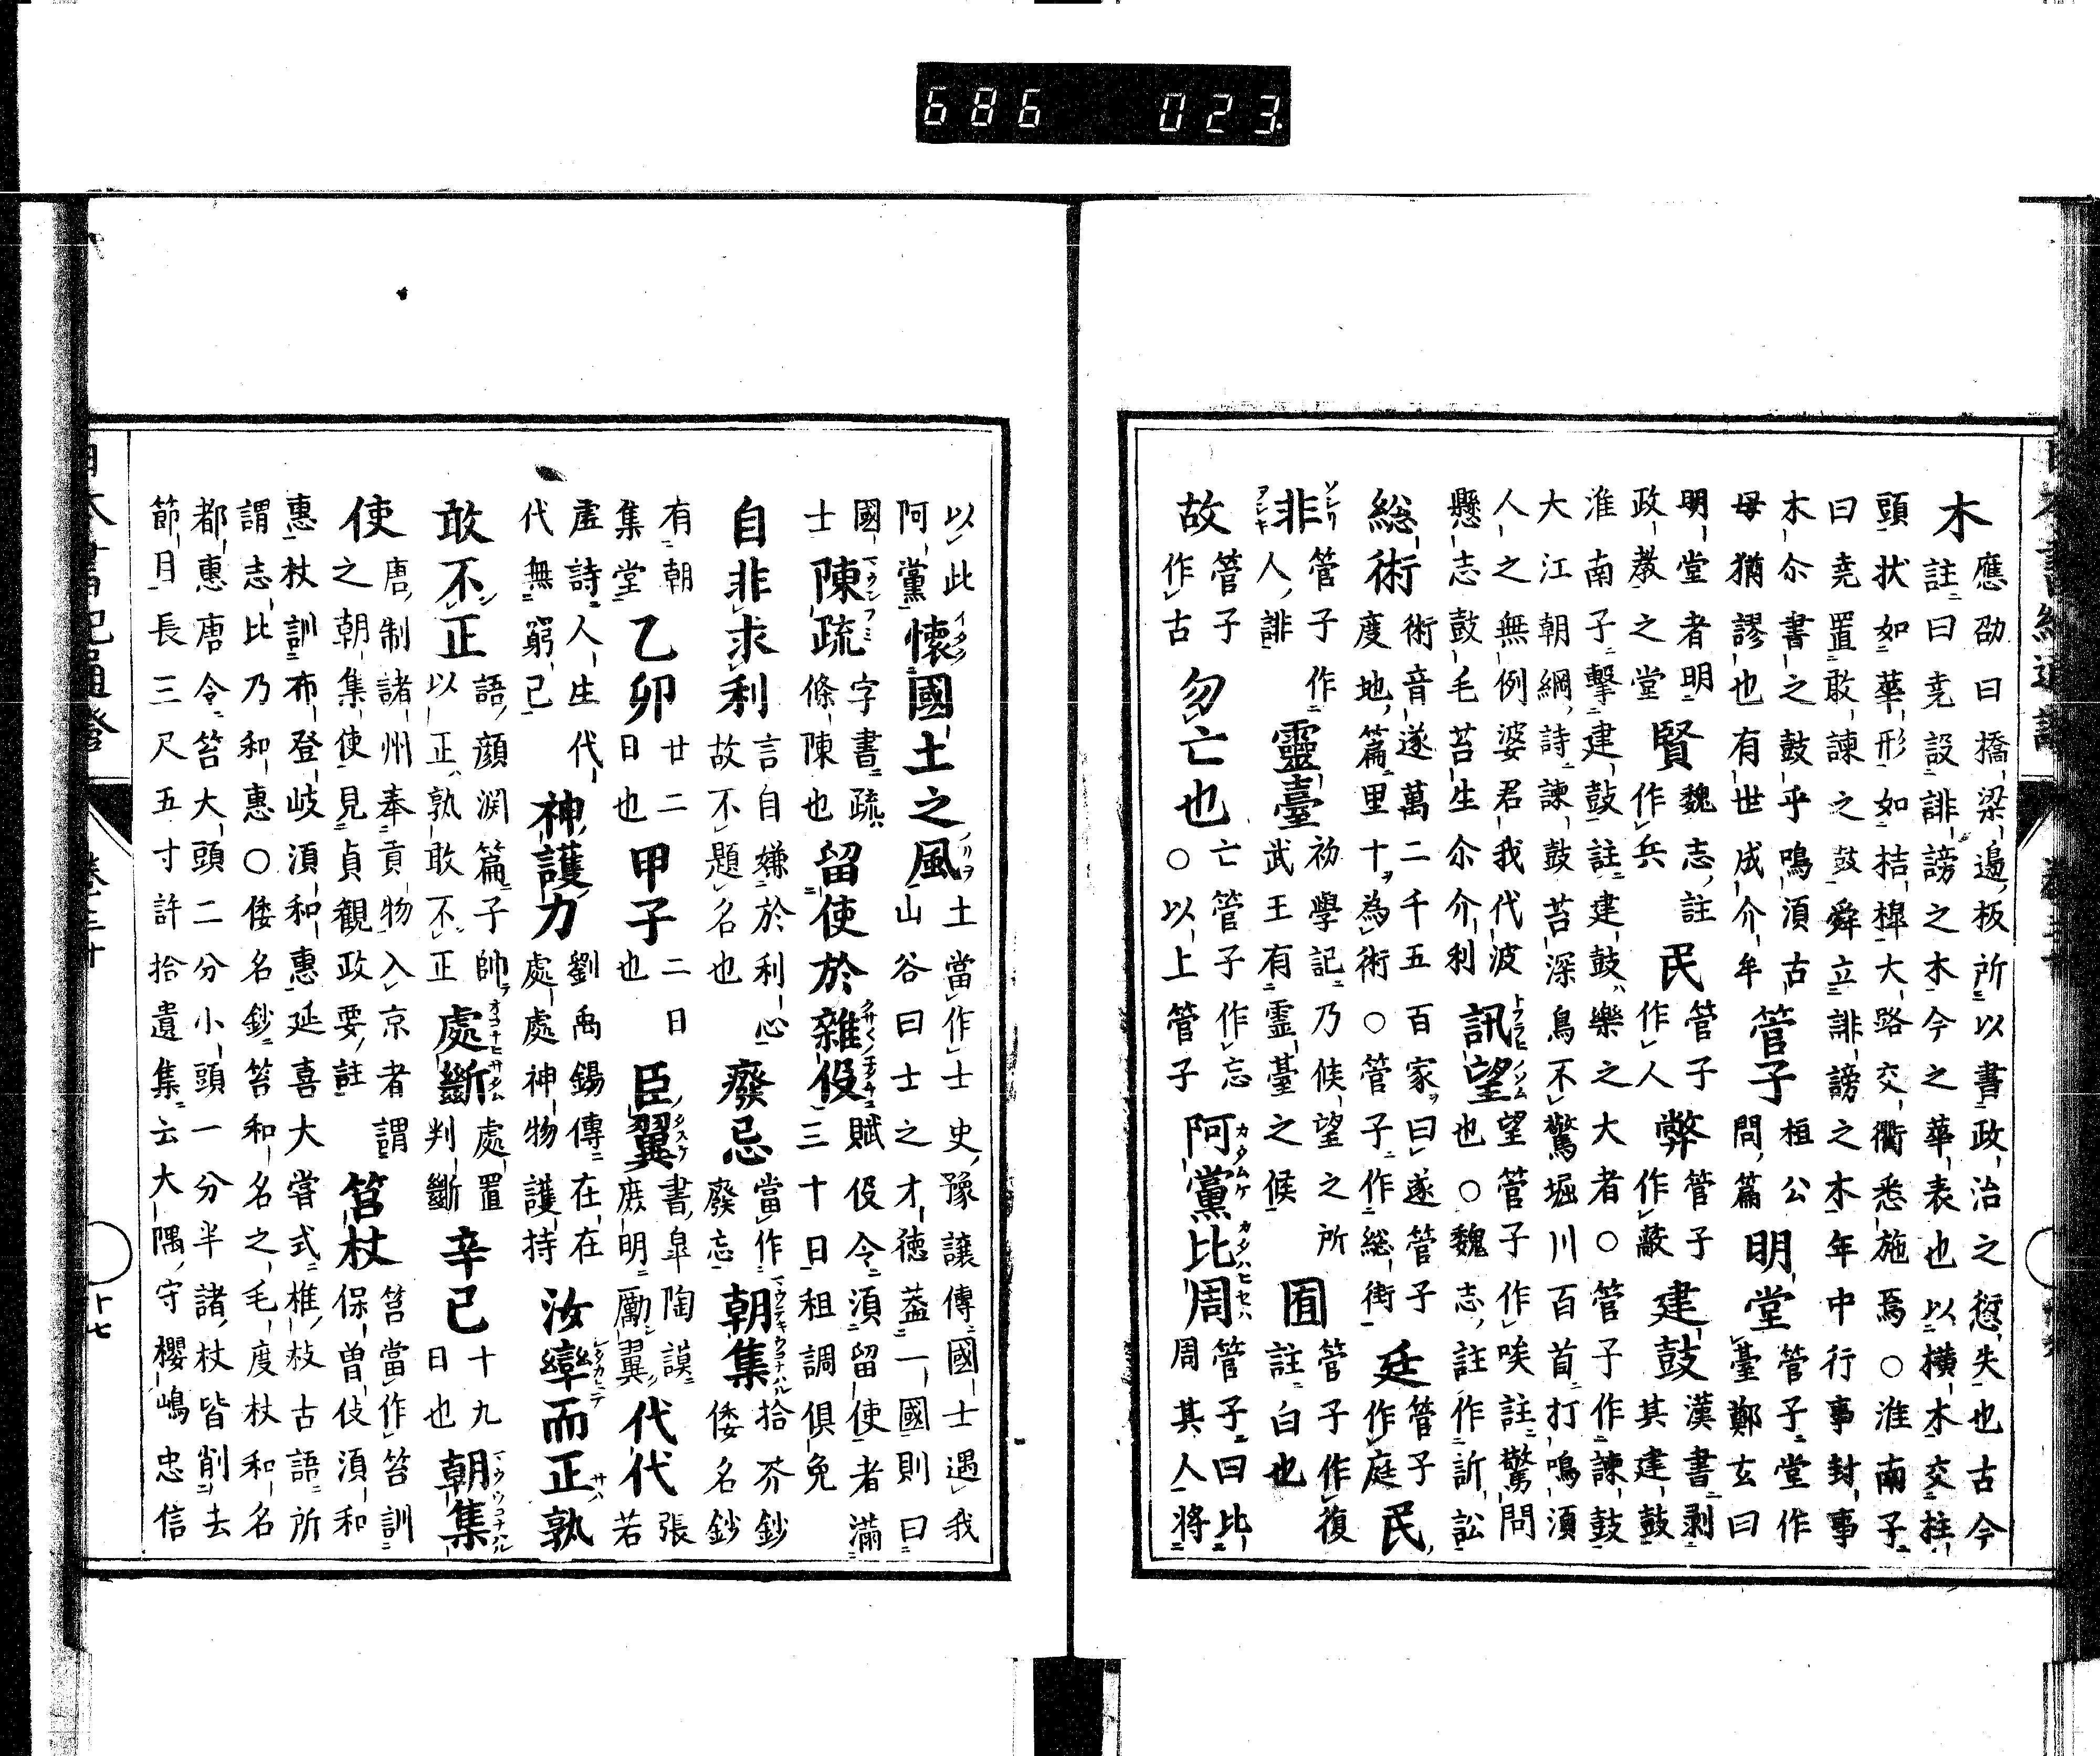 686 023
木 應劭曰橋梁邊板所以書政治之愆失也古今
註曰尭設誹謗之木今之華表也以横木交柱
頭状如華形如桔橰大路交衢悉施焉○淮南子
曰尭置敢諫之鼓舜立誹謗之木年中行事封事
木尒書之鼓乎鳴湏古 管子 桓公 明堂 管子堂作
母猶謬也有世成介牟 問篇 臺鄭玄曰
明堂者明 賢 魏志註 民 管子 弊 管子 建鼓 漢書剥
政教之堂 作兵 作人 作蔽 其建鼓
淮南子撃建鼓註建鼓樂之大者○管子作諫鼓
大江朝綱詩諫鼓苔深鳥不驚堀川百首打鳴湏
人之無例婆君我代波 訊望 望管子作唉註驚問
懸志鼓毛苔生尒介利 也○魏志註作訢訟
総術 術音遂萬二千五百家曰遂管子 廷 管子 民
度地篇里十為術○管子作総街 作庭
非 管子作 靈臺 初學記乃候望之所 囿 管子作復
人誹 武王有霊臺之候 註白也
故 管子 勿亡也 亡管子作忘 阿黨比周 管子曰比
作古 ○以上管子 周其人将
以此 懐國土之風 土當作士史豫譲傳國士遇我
阿黨 山谷曰士之才徳葢一國則曰
國 陳疏 字書疏 留使於雜役 賦役令湏留使者滿
士 條陳也 三十日租調俱免
自非求利 言自嫌於利心 癈忌 當作 朝集 拾芥鈔
故不題名也 癈忘 倭名鈔
有朝 乙卯 廿二 甲子 二日 臣翼 書皐陶謨 代代 張
集堂 日也 也 庶明勵翼 若
虚詩人生代 神護力 劉禹錫傳在在 汝率而正孰
代無窮已 處處神物護持
敢不正 語顔渕篇子帥 處斷 處置 辛已 十九 朝集
以正孰敢不正 判斷 日也
使 唐制諸州奉貢物入京者謂 笞杖 笞當作笞訓
之朝集使見貞観政要註 保曽伎湏和
惠杖訓布登岐湏和惠延喜大嘗式椎杖古語所
謂志比乃和惠○倭名鈔笞和名之毛度杖和名
都惠唐令笞大頭二分小頭一分半諸杖皆削去
節目長三尺五寸許拾遺集云大隅守櫻嶋忠信
十七